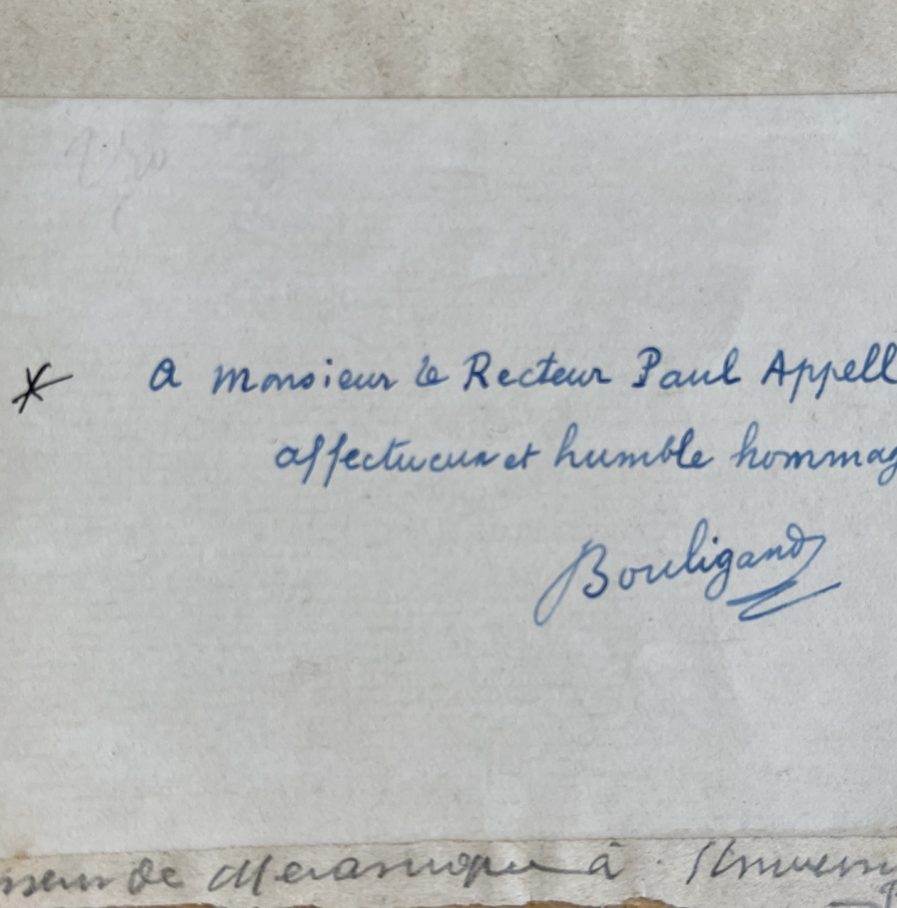 a Monsieur le Recteur Paul Appell
affectueux et humble hommag
Bouligand
sseur de Mécanique à l'Univers